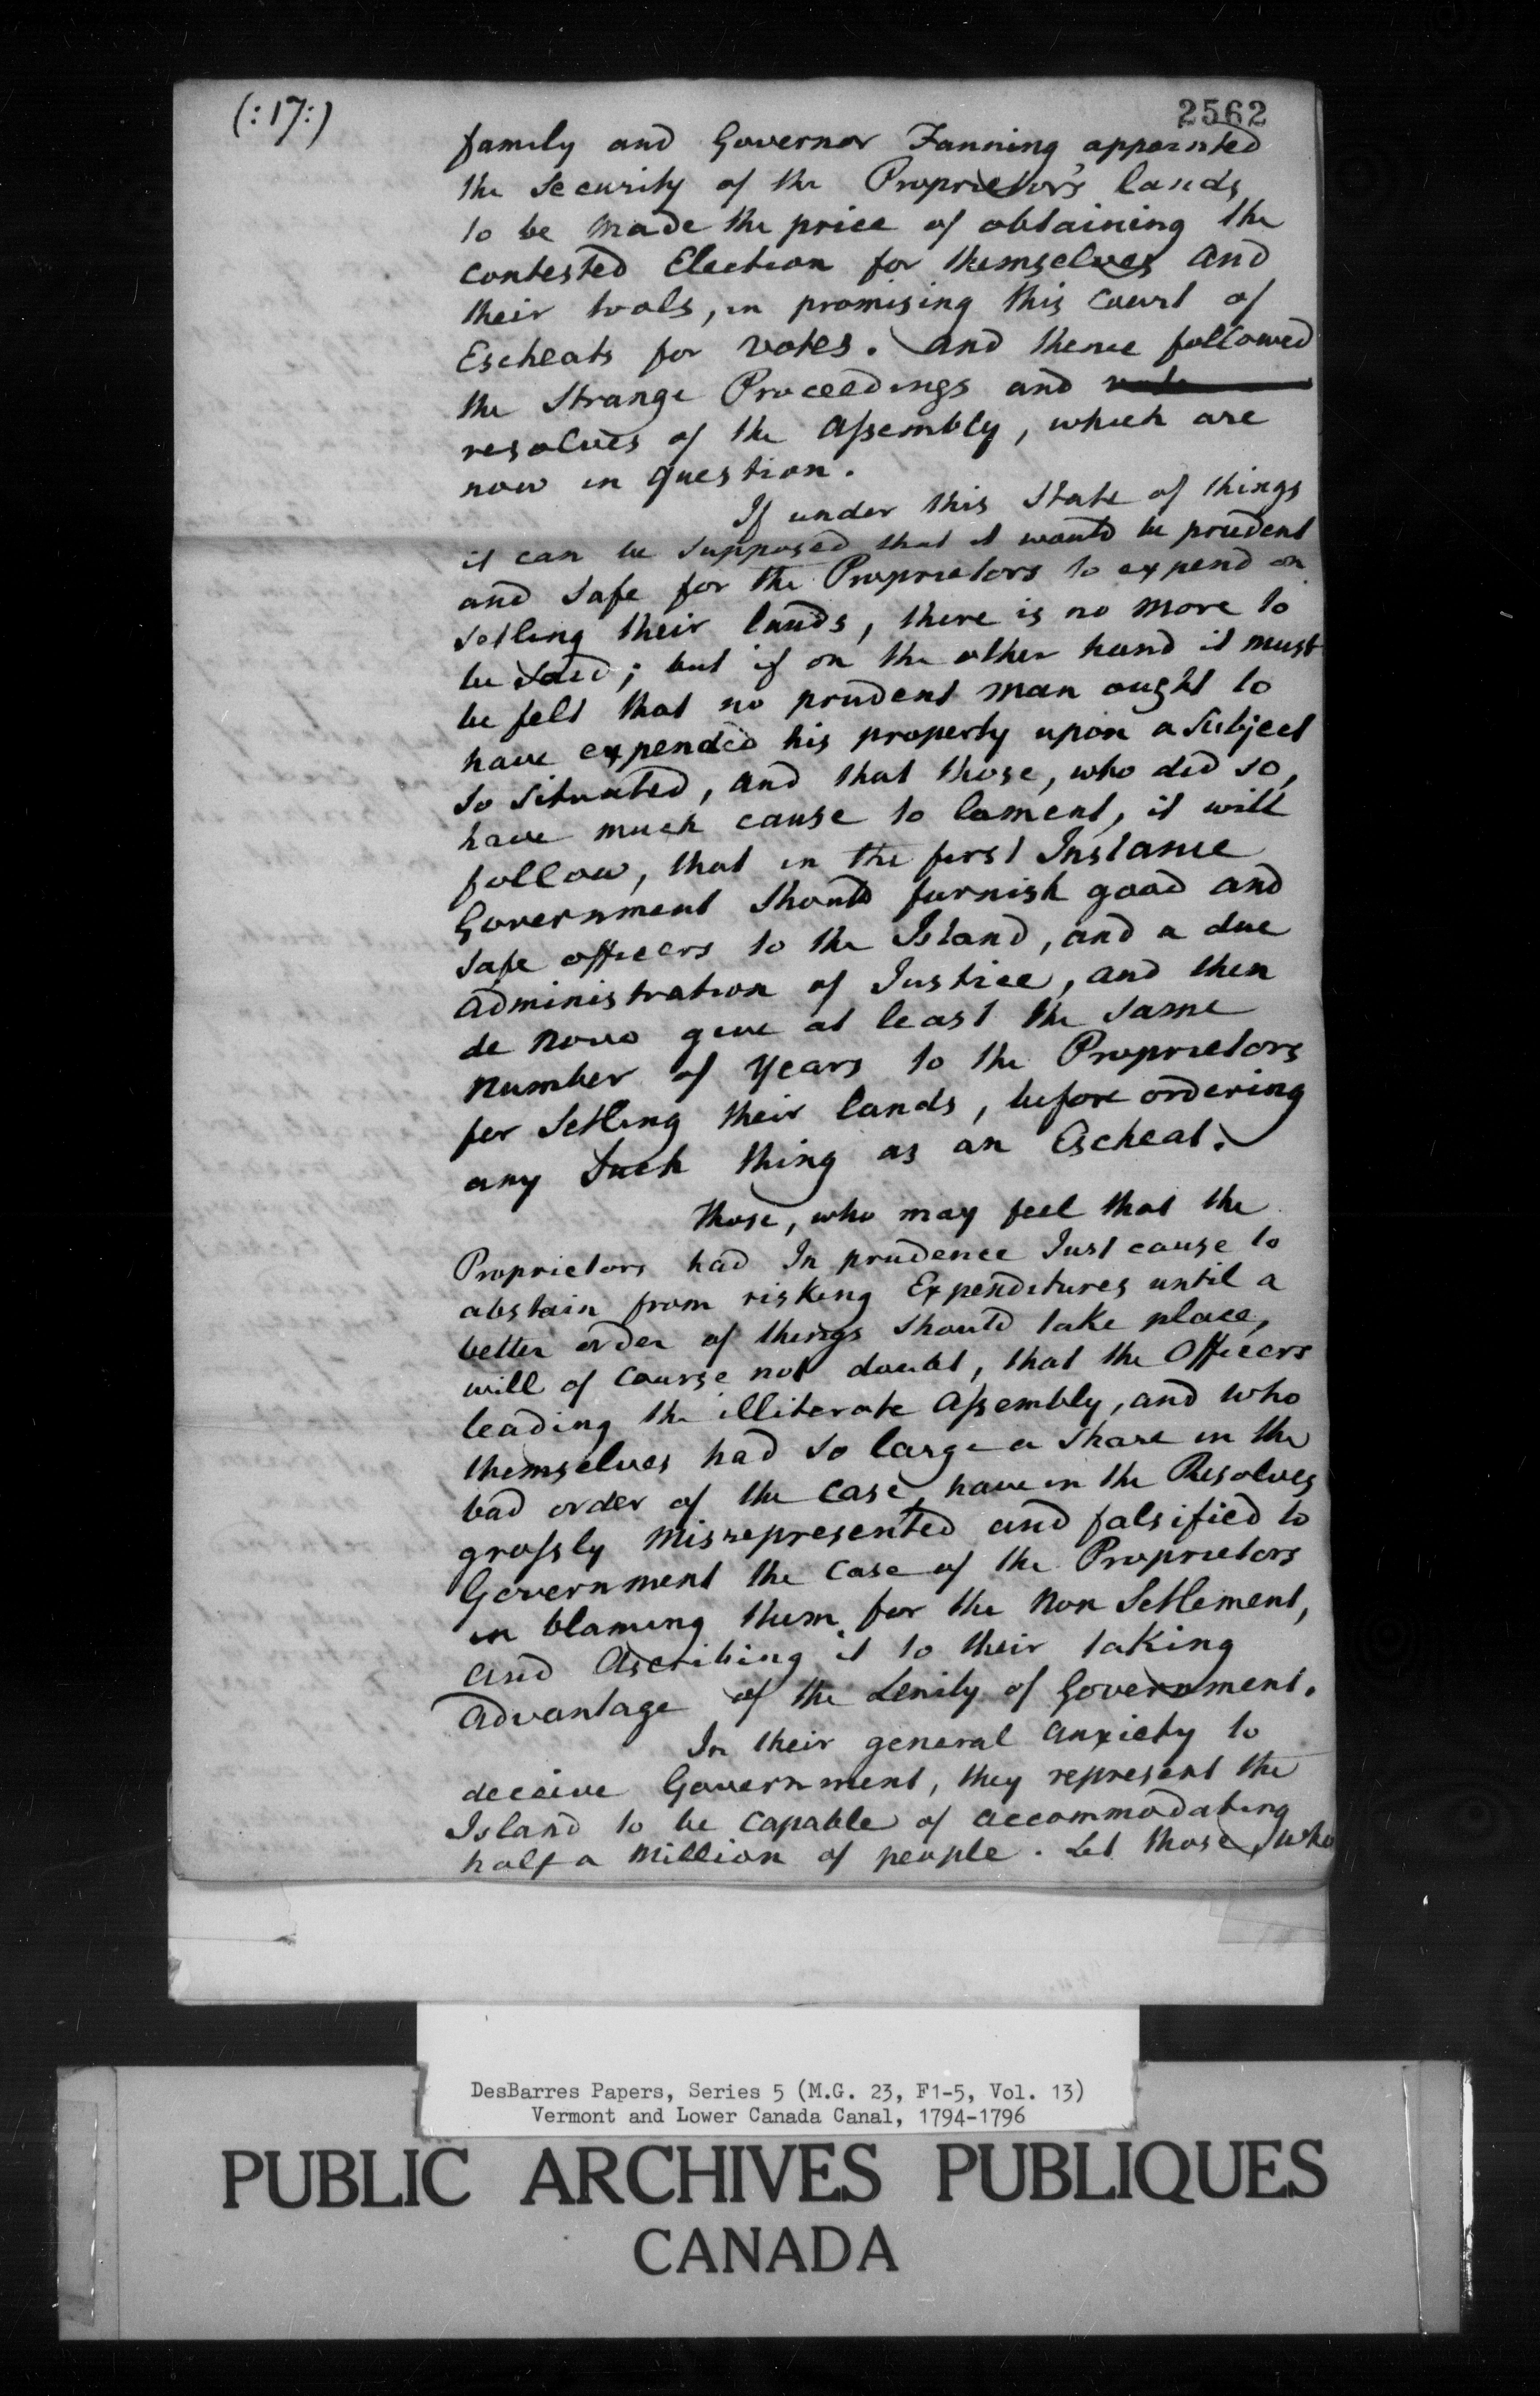 (:17:)
2562
family and Governor Fanning appointed
the Security of the Proprietor's lands
to be made the price of obtaining the
contested Election for themselves and
their tools, in promising this Court of
Escheats for votes. and thence followed
the Strange Proceedings and
resolves of the Assembly, which are
now in question.
If under this State of things
it can be supposed that it would be prudent
and safe for the Proprietors to expend on
setling their lands, there is no more to
be said; but if on the other hand it must
be felt that no prudent man ought to
have expended his property upon a Subject
so situated, and that those, who did so,
have much cause to lament, it will
follow, that in the first Instance
Government should furnish good and
safe officers to the Island, and a due
administration of Justice, and then
de novo give at least the same
number of years to the Proprietors
for Setling their lands, before ordering
any such thing as an Escheat.
Those, who may feel that the
Proprietors had In prudence Just cause to
abstain from risking Expenditures until a
better order of things should take place,
will of course not doubt, that the Officers
leading the illiterate Assembly, and who
themselves had so large a share in the
bad order of the case, have in the Resolves
grossly misrepresented and falsified to
Government the case of the Proprietors
in blaming them for the non Setlement,
and Ascribing it to their taking
advantage of the Lenity of Government.
In their general anxiety to
deceive Government, they represent the
Island to be capable of accommodating
half a million of people. Let those, who
DesBarres Papers, Series 5 (M.G. 23, F1-5, Vol. 13)
Vermont and Lower Canada Canal, 1794-1796
PUBLIC ARCHIVES PUBLIQUES
CANADA